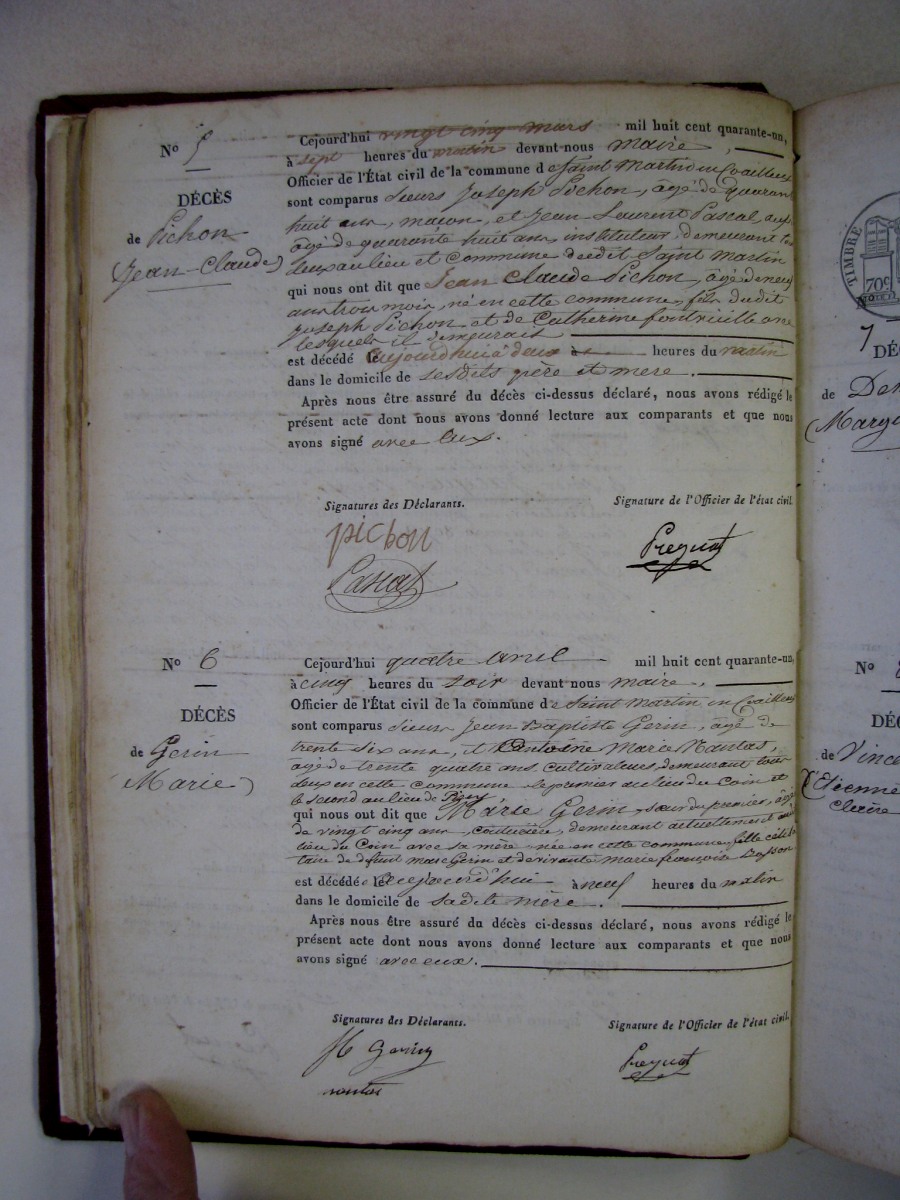 No 5
DÉCÈS
de Pichon
(Jean-Claude)
Cejourd'hui vingt cinq mars mil huit cent quarante-un,
à sept heures du matin devant-nous maire,
Officier de l'État civil de la commune de Saint Martin en Coailleux
sont comparus Sieurs Joseph Pichon, âgé de quarante
huit ans, maçon, et Jean-Laurent Pascal, aussi
âgé de quarante huit ans, instituteur, demeurant tous
deux au lieu et Commune de Saint Martin
qui nous ont dit que Jean Claude Pichon, âgé de neuf
ans trois mois, né en cette commune, fils dudit
Joseph Pichon et de Catherine
lesquels il demeurait
est décédé le aujourd'hui à deux heures du matin
dans le domicile de sesdits père et mère.
Après nous être assuré du décès ci-dessus déclaré, nous avons rédigé le
présent acte dont nous avons donné lecture aux comparants et que nous
avons signé avec eux.
Signatures des Déclarants.
Signature de l'Officier de l'état civil.
pichon
Pascal
Preynat
No 6
DÉCÈS
de Gerin
Marie)
Cejourd'hui quatre avril mil huit cent quarante-un,
à cinq heures du soir devant nous maire,
Officier de l'État civil de la commune de Saint Martin en Coailleux
sont comparus Sieurs Jean Baptiste Gerin, âgé de
trente six ans, et Antoine Marie Nantas,
âgé de trente quatre ans, cultivateurs, demeurant tous
deux en cette commune le premier au lieu du Coin et
le second au lieu de
qui nous ont dit que Marie Gerin, sœur du premier, âgée
de vingt cinq ans, demeurant actuellement au
lieu du Coin avec sa mère née en cette commune, fille céliba
taire de défunt marc Gerin et de vivante marie françoise
est décédée le aujourd'hui à neuf heures du matin
dans le domicile de sadite mère.
Après nous être assuré du décès ci-dessus déclaré, nous avons rédigé le
présent acte dont nous avons donné lecture aux comparants et que nous
avons signé avec eux.
Signatures des Déclarants.
Signature de l'Officier de l'état civil.
Gerin
nantas
Preynat
TIMBRE
70c
No
7
DÉ
de
(Margu
No
DÉC
de Vince
(Etienne